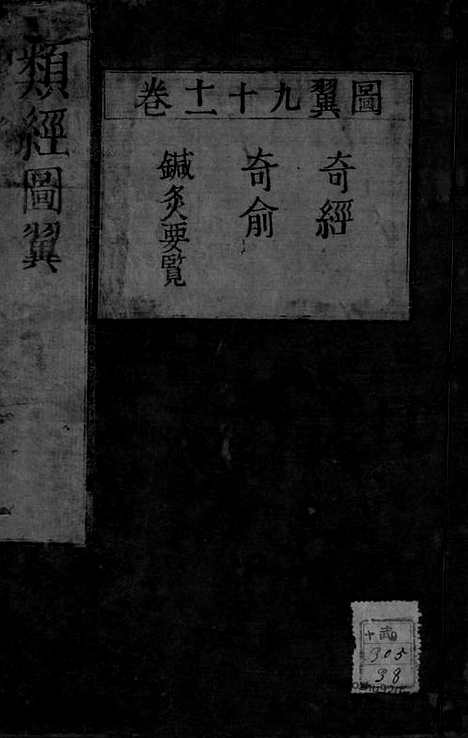 類經圖翼
圖翼九十十一卷
奇經
奇俞
鍼灸要覽
305
38